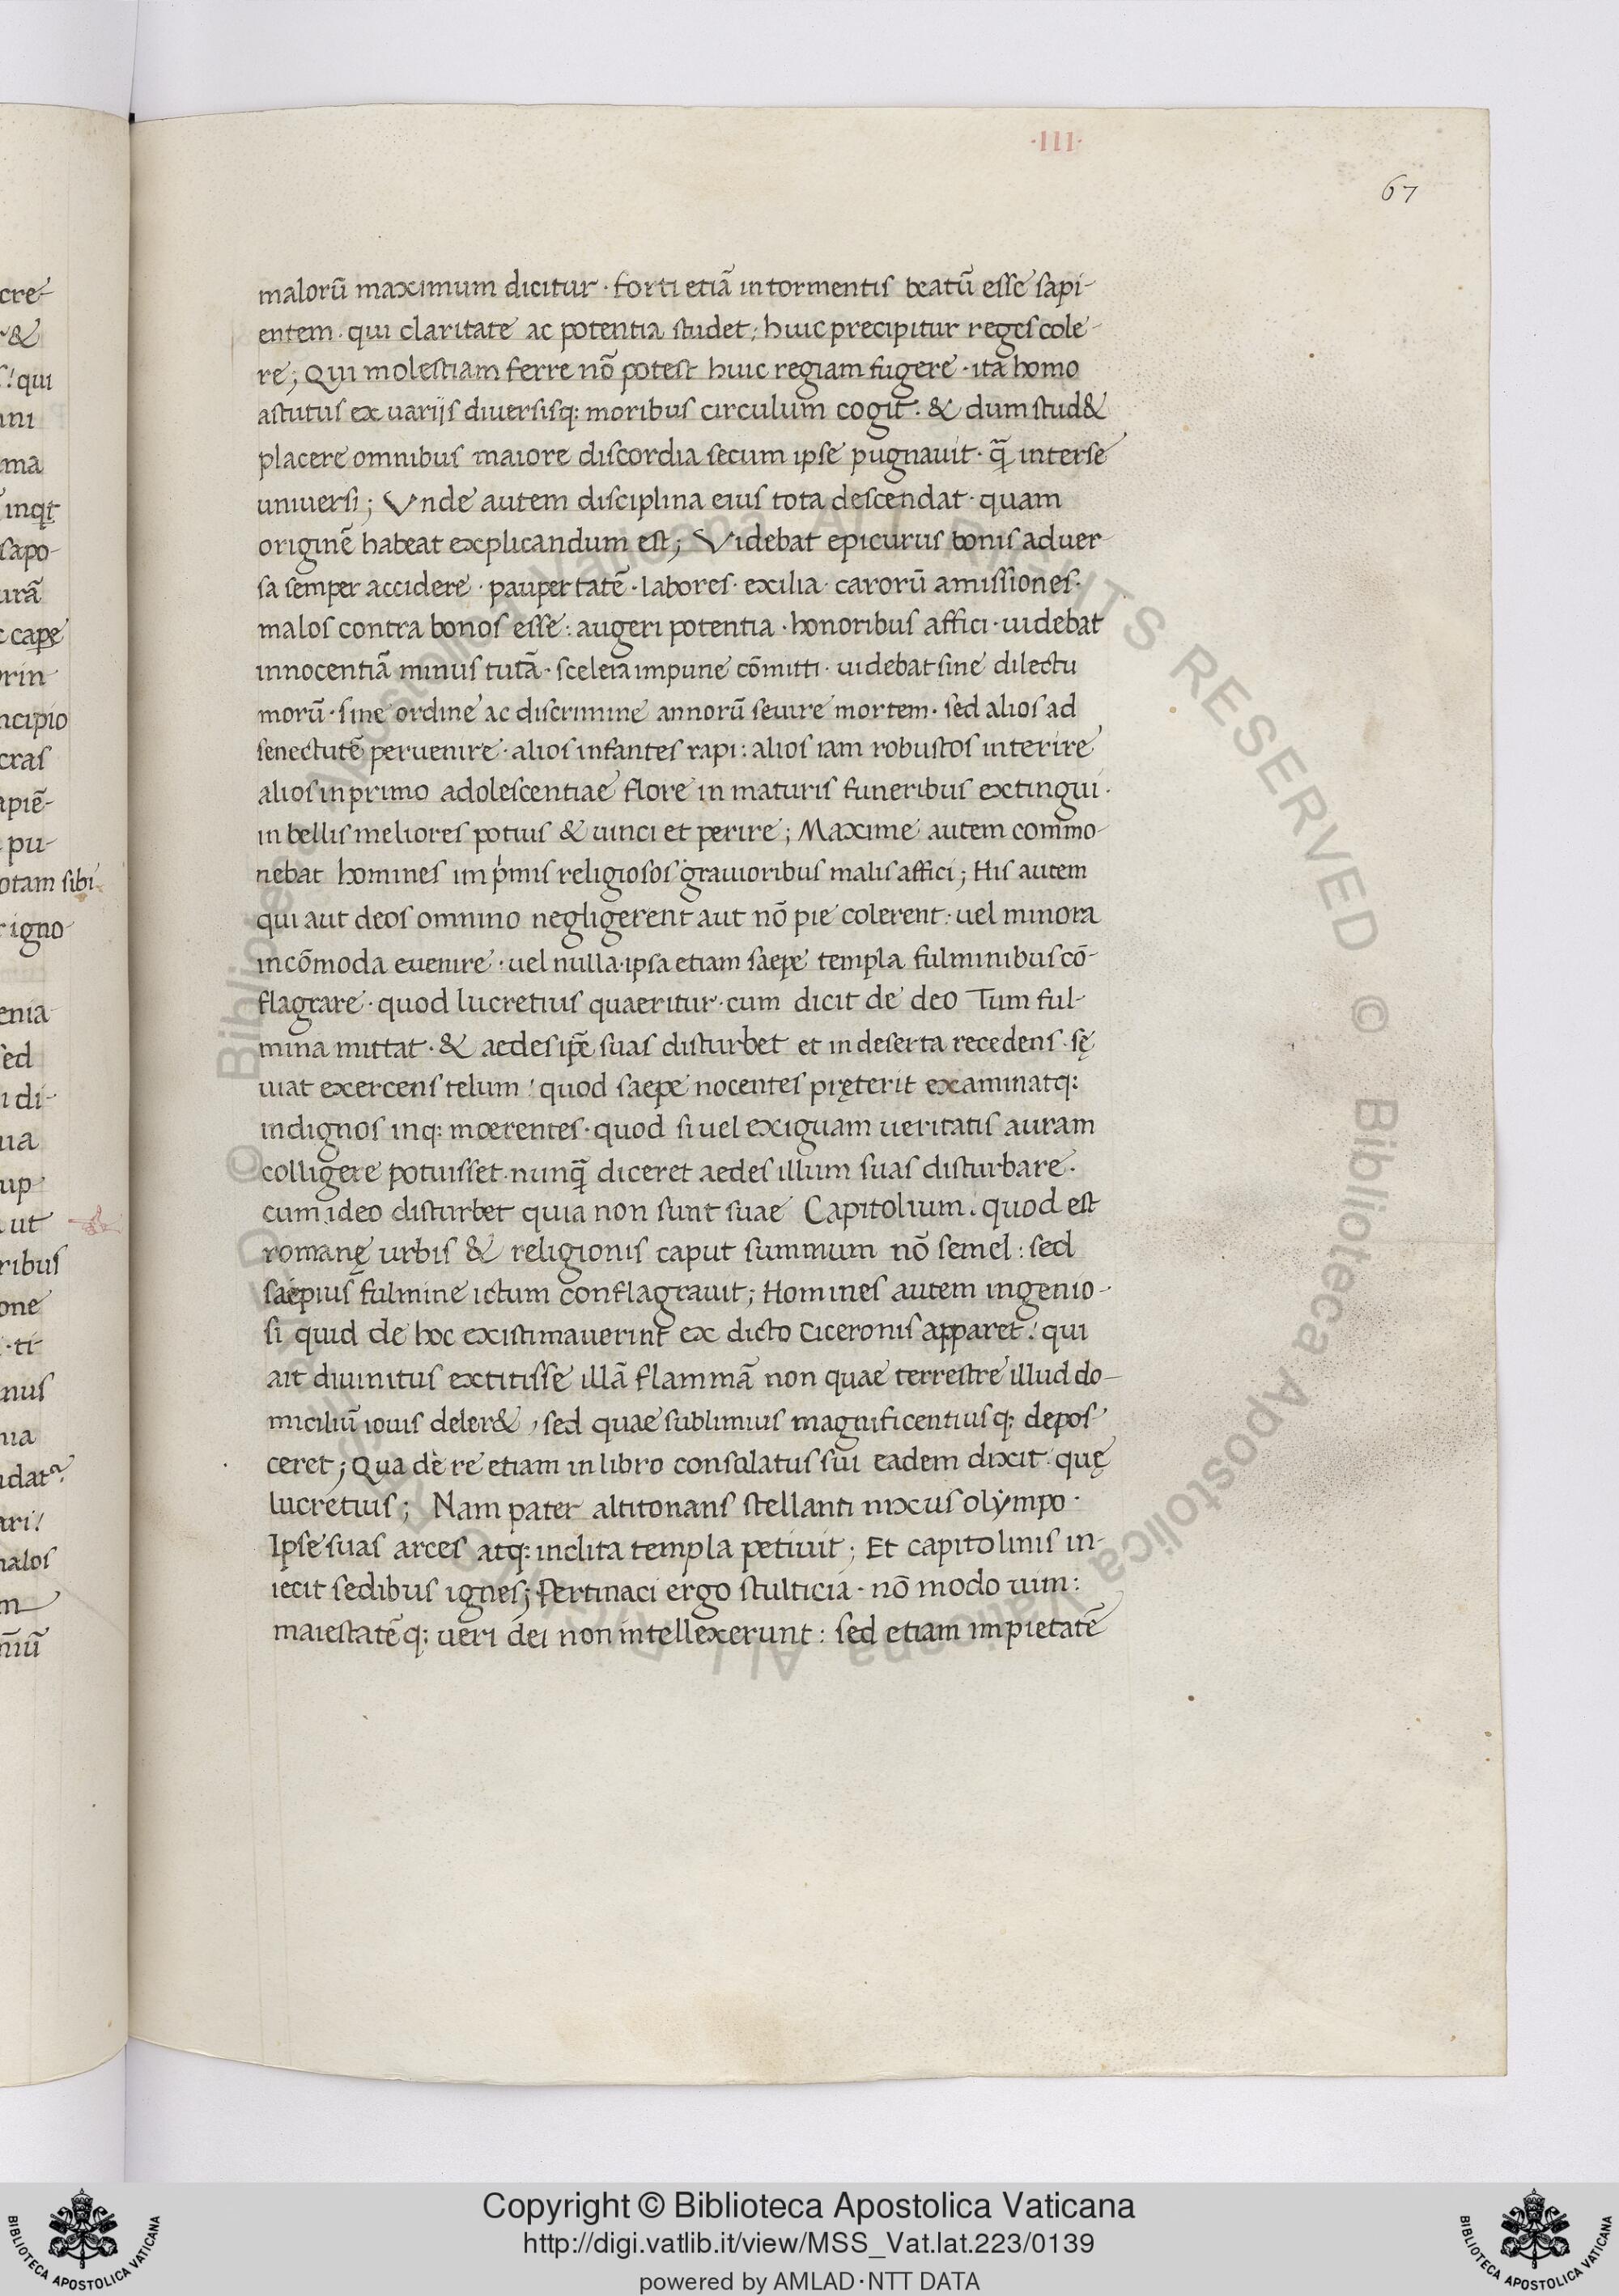 ·III·
67
malorū maximum dicitur · forti etiā in tormentis beatū esse sapi-
entem · qui claritate ac potentia studet; huic precipitur reges cole-
re; Qui molestiam ferre nō potest huic regiam fugere · ita homo
astutus ex uarijs diuersisq: moribus circulum cogit · & dum stud&
placere omnibus maiore discordia secum ipse pugnauit · q̄ inter se
uniuersi; Vnde autem disciplina eius tota descendat · quam
originē habeat explicandum est; Videbat epicurus bonis aduer-
sa semper accidere · paupertatē · labores · exilia · carorū amissiones ·
malos contra bonos esse : augeri potentia · honoribus affici · uidebat
innocentiā minus tutā · scelera impune cōmitti · uidebat sine dilectu
morū · sine ordine ac discrimine annorū seuire mortem · sed alios ad
senectutē peruenire · alios infantes rapi : alios iam robustos interire
alios in primo adolescentiae flore in maturis funeribus extingui ·
in bellis meliores potius & uinci et perire; Maxime autem commo-
nebat homines imp̓mis religiosos grauioribus malis affici; His autem
qui aut deos omnino negligerent aut nō pie colerent · uel minora
incōmoda euenire · uel nulla · ipsa etiam saepe templa fulminibus cō-
flagrare · quod lucretius quaeritur · cum dicit de deo Tum ful-
mina mittat · & aedes ip̄e suas disturbet et in deserta recedens · sę
uiat exercens telum ! quod saepe nocentes pręterit examinatq:
indignos inq: mœrentes · quod si uel exiguam ueritatis auram
colligere potuisset · nunq̄ diceret aedes illum suas disturbare ·
cum ideo disturbet quia non sunt suae Capitolium · quod est
romanę urbis & religionis caput summum nō semel : sed
saepius fulmine ictum conflagrauit; Homines autem ingenio-
si quid de hoc existimauerint ex dicto Ciceronis apparet ! qui
ait diuinitus extitisse illā flammā non quae terrestre illud do-
miciliū iouis deler& , sed quae sublimius magnificentiusq: depos
ceret; Qua de re etiam in libro consolatus sui eadem dixit · quę
lucretius; Nam pater altitonans stellanti nixus olẏmpo ·
Ipse suas arces atq: inclita templa petiuit; Et capitolinis in-
iecit sedibus ignes; Pertinaci ergo stulticia · nō modo uim :
maiestatē q: ueri dei non intellexerunt : sed etiam impietatē
Copyright © Biblioteca Apostolica Vaticana
http://digi.vatlib.it/view/MSS_Vat.lat.223/0139
powered by AMLAD·NTT DATA
BIBLIOTECA APOSTOLICA VATICANA
BIBLIOTECA APOSTOLICA VATICANA